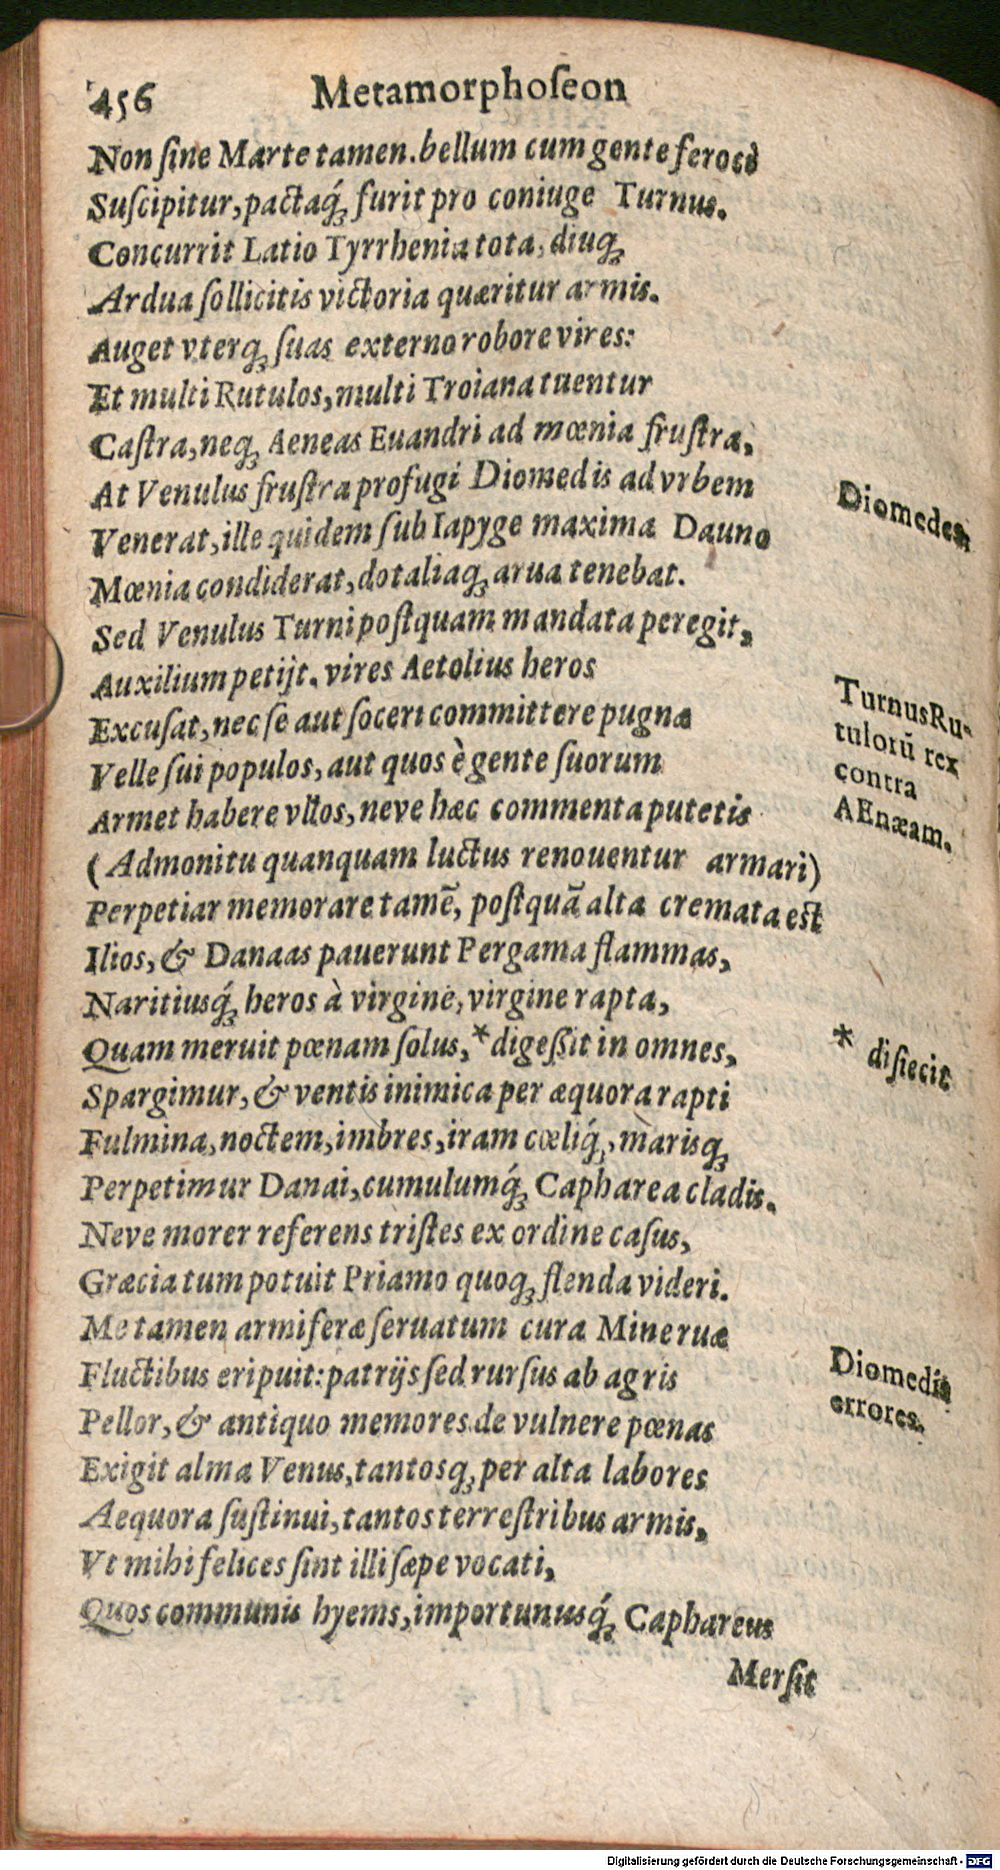 456 Metamorphoſeon
Non ſine Marte tamen. bellum cum gente feroci
Suſcipitur, pactaq́ꝫ furit pro coniuge Turnus.
Concurrit Latio Tyrrhenia tota, diuqꝫ
Ardua ſollicitis victoria quæritur armis.
Auget vterqꝫ ſuas externo robore vires:
Et multi Rutulos, multi Troiana tuentur
Caſtra, neqꝫ Aeneas Euandri ad mœnia fruſtra,
At Venulus fruſtra profugi Diomedis ad vrbem
Diomedes
Venerat, ille quidem ſub Iapyge maxima Dauno
Mœnia condiderat, dotaliaqꝫ arua tenebat.
Sed Venulus Turni poſtquam mandata peregit,
Auxilium petijt. vires Aetolius heros
Excuſat, nec ſe aut ſoceri committere pugnæ
Turnus Ru-
tulorū rex
contra
AEnæam.
Velle ſui populos, aut quos è gente ſuorum
Armet habere vllos, neve hæc commenta putetis
(Admonitu quanquam luctus renouentur armari)
Perpetiar memorare tamē, poſtquā alta cremata eſt
Ilios, & Danaas pauerunt Pergama flammas,
Naritiusq́ꝫ heros à virgine, virgine rapta,
Quam meruit pœnam ſolus, *digeſſit in omnes,
* diſiecit
Spargimur, & ventis inimica per æquora rapti
Fulmina, noctem, imbres, iram cœliq́ꝫ, marisqꝫ
Perpetimur Danai, cumulumq́ꝫ Capharea cladis.
Neve morer referens triſtes ex ordine caſus,
Græcia tum potuit Priamo quoqꝫ flenda videri.
Me tamen armiferæ ſeruatum cura Mineruæ
Fluctibus eripuit: patrijs ſed rurſus ab agris
Diomedis
errores.
Pellor, & antiquo memores de vulnere pœnas
Exigit alma Venus, tantosqꝫ per alta labores
Aequora ſuſtinui, tantos terreſtribus armis,
Vt mihi felices ſint illi ſæpe vocati,
Quos communis hyems, importunusq́ꝫ Caphareus
Merſit
Digitalisierung gefördert durch die Deutsche Forschungsgemeinschaft - DFG